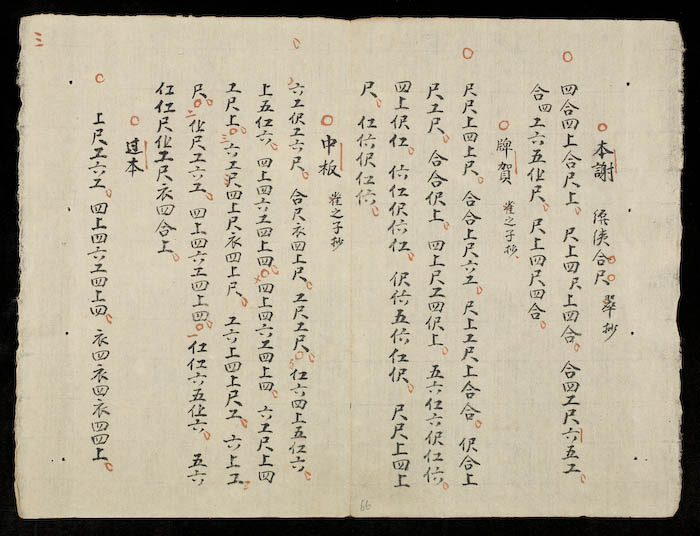 本謝 合尺 抄
四合四上合尺上。尺上四尺上四合。合四工尺六五工。
合四工六五仩尺。尺上四尺四合。
牌賀 崔之子抄
尺尺上四上尺。合合上尺六工。尺上工尺上合合。伬合上
尺工尺。合合伬上。四上尺工四伬上。五六仜六伬仜𠆾。
四上伬仜。𠆾仜伬𠆾仜。伬𠆾五𠆾仜伬。尺尺上四上
尺。仜𠆾伬仜𠆾。
中板 崔之子抄
六工伬工六尺。合尺衣四上尺。工尺工尺。仜六四上五仜六。
上五仜六。四上四六工四上四。四上四六工四上四。六工尺上四
工尺上。六工尺四上尺衣四上尺。工六上四上尺工。六上工
尺。仩尺工六工。四上四六工四上四。仜仜六五仩六。五六
仜仜尺仩工尺衣四合上。
过本
上尺工六工。四上四六工四上四。衣四衣四衣四四上。
三
66